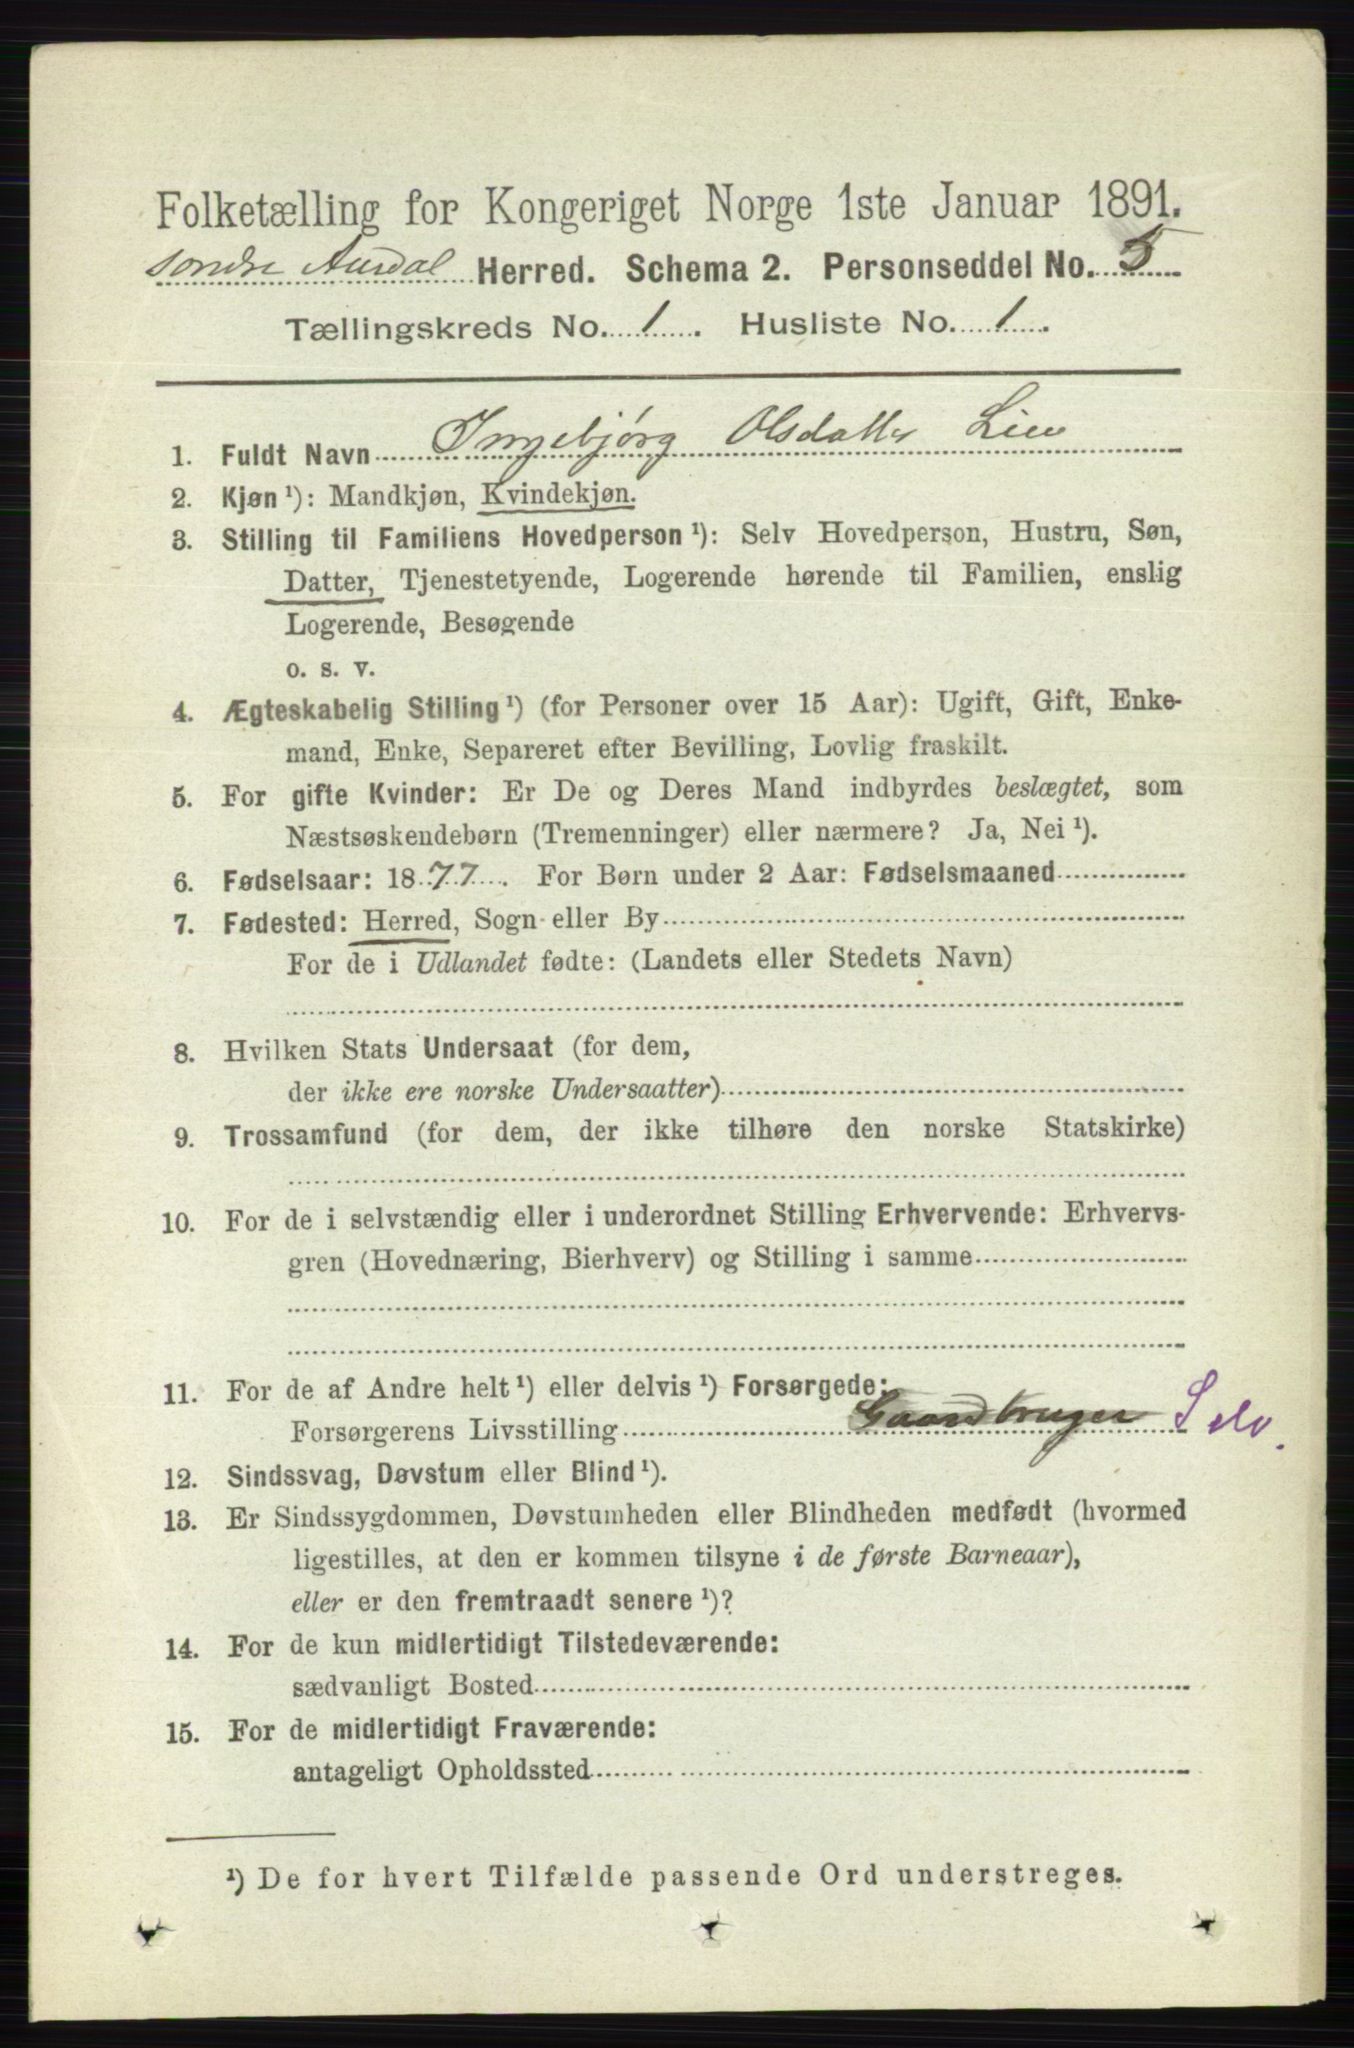 Folketælling for Kongeriget Norge 1ste Januar 1891.
Søndre Aurdal Herred. Schema 2. Personseddel No. 5
Tællingskreds No. 1. Husliste No. 1.
1. Fuldt Navn Ingebjørg Olsdatter Lien
2. Kjøn ¹): Mandkjøn, Kvindekjøn.
3. Stilling til Familiens Hovedperson ¹): Selv Hovedperson, Hustru, Søn,
Datter, Tjenestetyende, Logerende hørende til Familien, enslig
Logerende, Besøgende
o. s. v.
4. Ægteskabelig Stilling ¹) (for Personer over 15 Aar): Ugift, Gift, Enke-
mand, Enke, Separeret efter Bevilling, Lovlig fraskilt.
5. For gifte Kvinder: Er De og Deres Mand indbyrdes beslægtet, som
Næstsøskendebørn (Tremenninger) eller nærmere? Ja, Nei ¹).
6. Fødselsaar: 1877. For Børn under 2 Aar: Fødselsmaaned
7. Fødested: Herred, Sogn eller By
For de i Udlandet fødte: (Landets eller Stedets Navn)
8. Hvilken Stats Undersaat (for dem,
der ikke ere norske Undersaatter)
9. Trossamfund (for dem, der ikke tilhøre den norske Statskirke)
10. For de i selvstændig eller i underordnet Stilling Erhvervende: Erhvervs-
gren (Hovednæring, Bierhverv) og Stilling i samme
11. For de af Andre helt ¹) eller delvis ¹) Forsørgede:
Forsørgerens Livsstilling Gaardbruger Selv.
12. Sindssvag, Døvstum eller Blind ¹).
13. Er Sindssygdommen, Døvstumheden eller Blindheden medfødt (hvormed
ligestilles, at den er kommen tilsyne i de første Barneaar),
eller er den fremtraadt senere ¹)?
14. For de kun midlertidigt Tilstedeværende:
sædvanligt Bosted
15. For de midlertidigt Fraværende:
antageligt Opholdssted
¹) De for hvert Tilfælde passende Ord understreges.